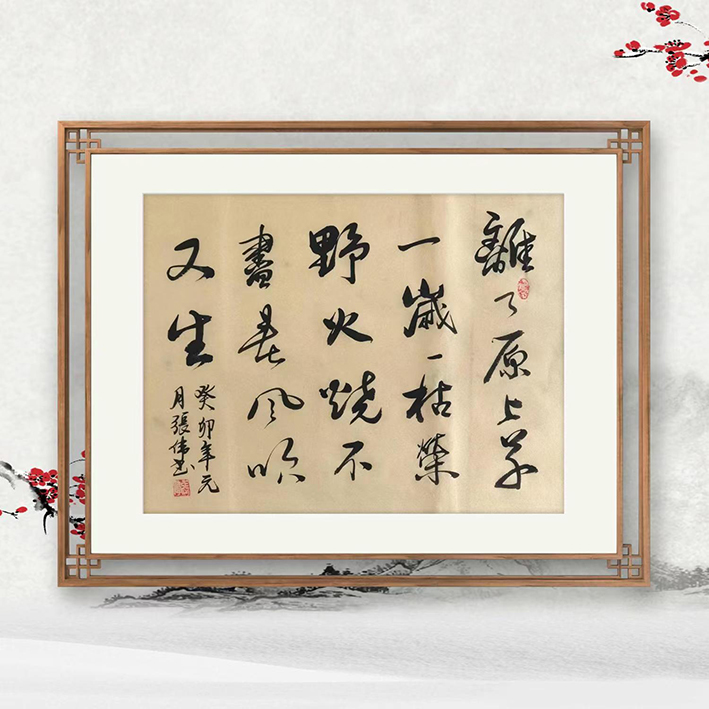 離々原上草
一歲一枯榮
野火燒不
盡春風吹
又生
癸卯年元
月張偉書